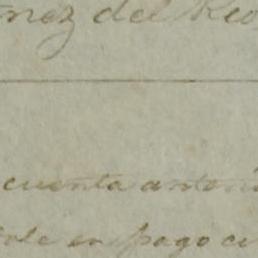 nez del Rio
cuenta antoni
ole en pago ci